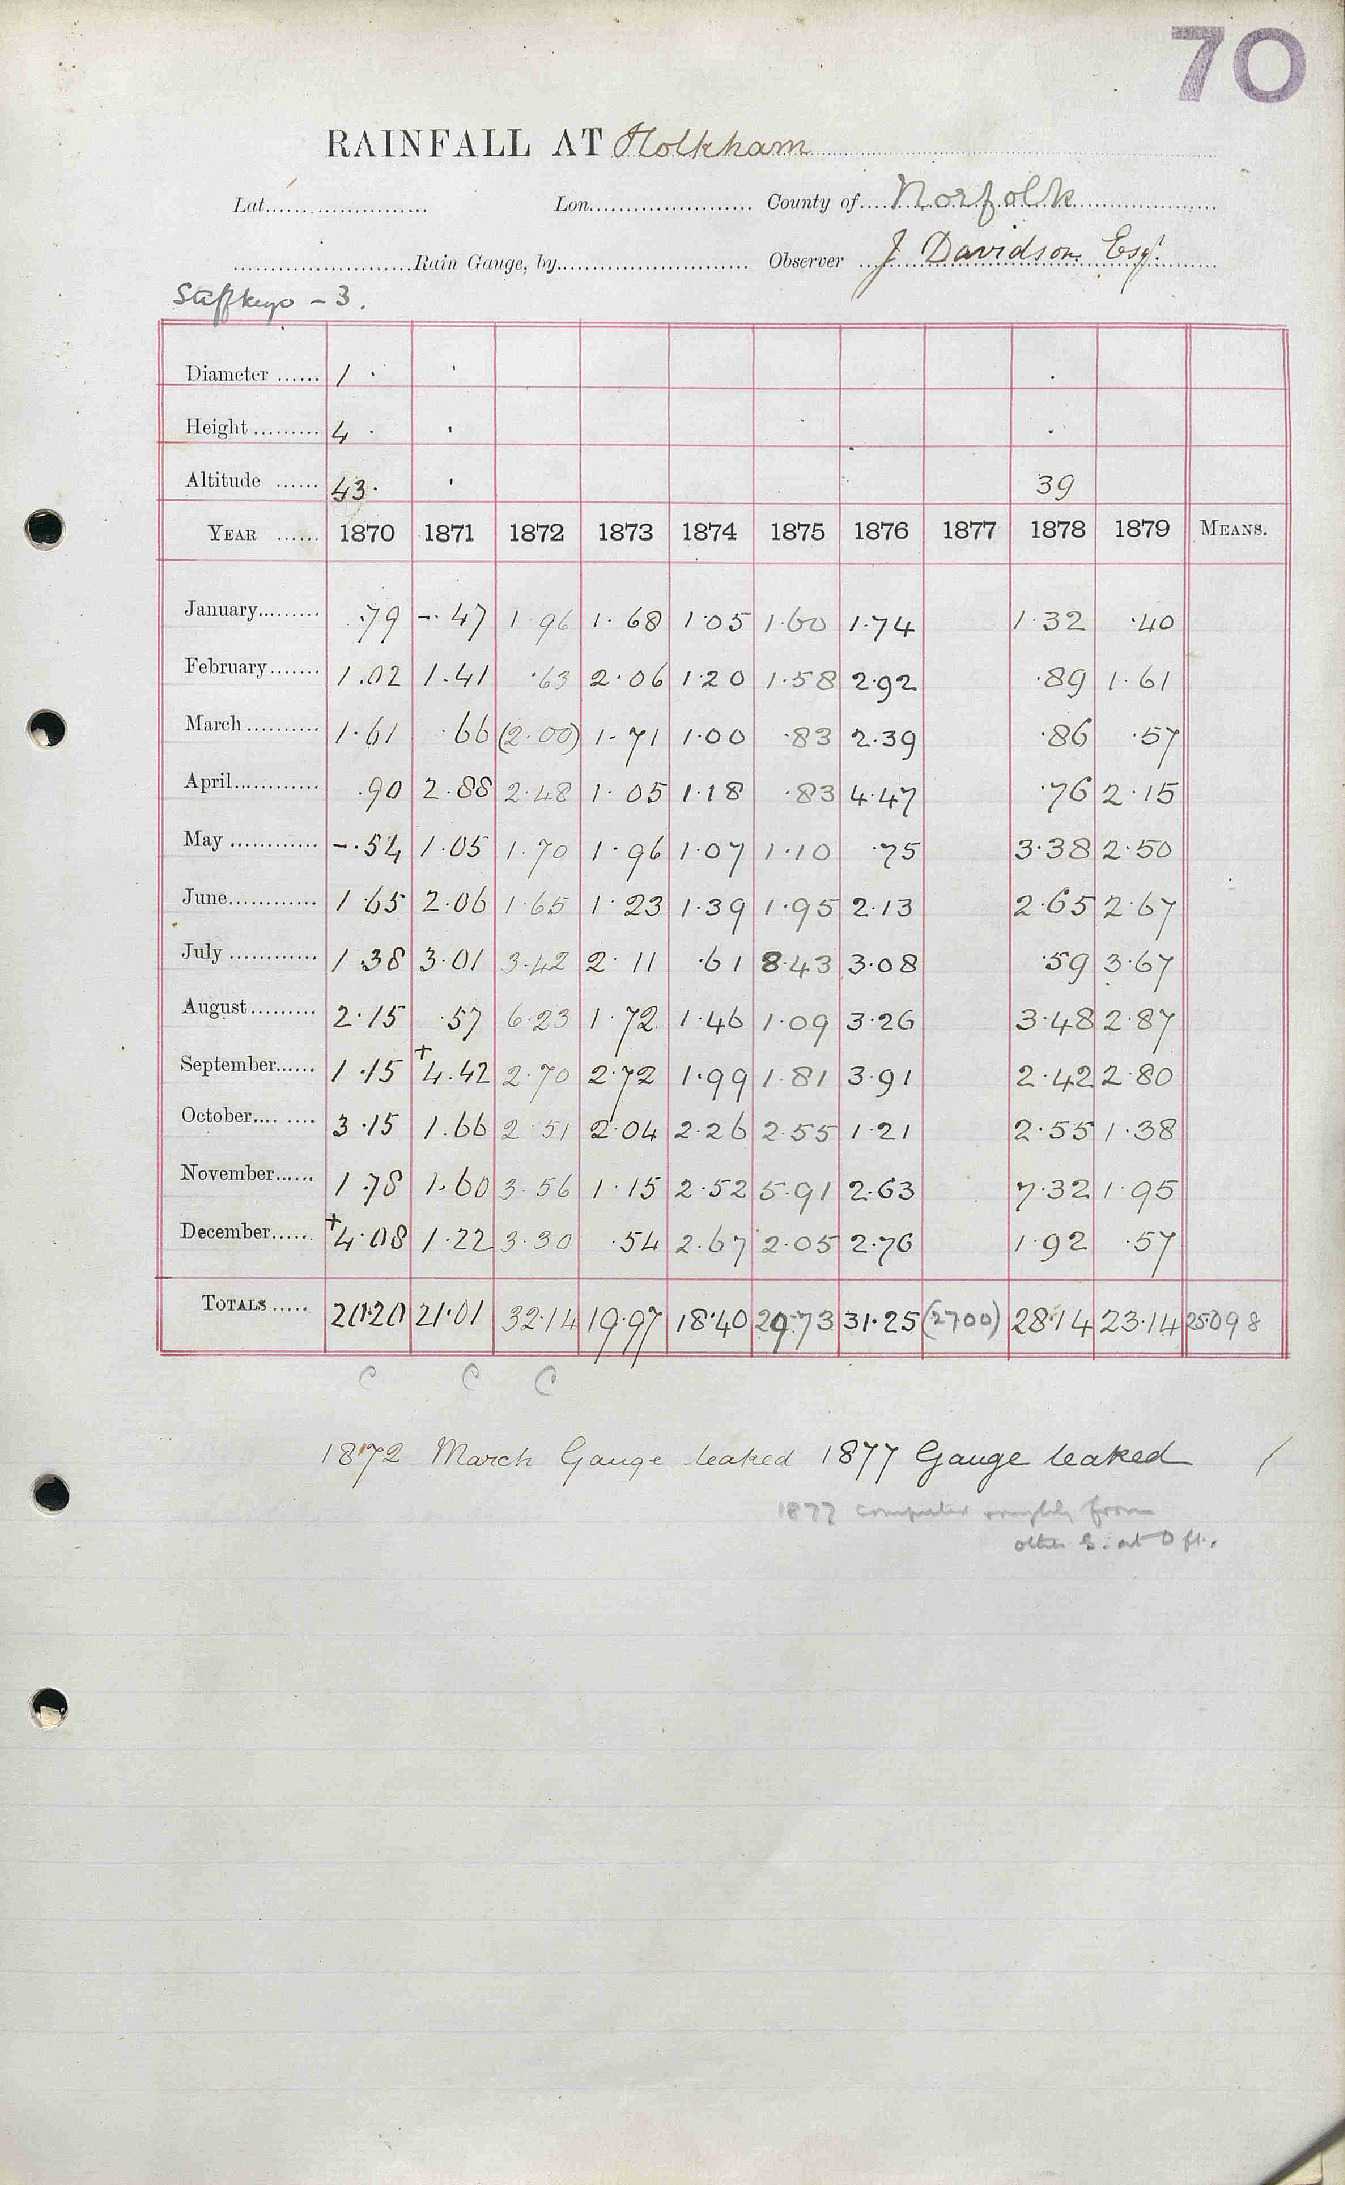 70
RAINFALL AT Holkham
Lat. Lon. County of Norfolk
Rain Gauge, by Observer J Davidson Esqr.
- 3.
Diameter 1
Height 4
Altitude 43 39
YEAR 1870 1871 1872 1873 1874 1875 1876 1877 1878 1879 MEANS.
January .79 -.47 1.96 1.68 1.05 1.60 1.74 1.32 .40
February 1.02 1.41 .63 2.06 1.20 1.58 2.92 .89 1.61
March 1.61 .66 (2.00) 1.71 1.00 .83 2.39 .86 .57
April .90 2.88 2.48 1.05 1.18 .83 4.47 .76 2.15
May -.54 1.05 1.70 1.96 1.07 1.10 .75 3.38 2.50
June 1.65 2.06 1.65 1.23 1.39 1.95 2.13 2.65 2.67
July 1.38 3.01 3.42 2.11 .61 8.43 3.08 .59 3.67
August 2.15 .57 6.23 1.72 1.46 1.09 3.26 3.48 2.87
September 1.15 +4.42 2.70 2.72 1.99 1.81 3.91 2.42 2.80
October 3.15 1.66 2.51 2.04 2.26 2.55 1.21 2.55 1.38
November 1.78 1.60 3.56 1.15 2.52 5.91 2.63 7.32 1.95
December +4.08 1.22 3.30 .54 2.67 2.05 2.76 1.92 .57
TOTALS 20.20 21.01 32.14 19.97 18.40 29.73 31.25 (2700) 28.14 23.14 25098
C C C
1872 March Gauge leaked 1877 Gauge leaked /
1877 computed roughly from
other G. at 0 ft.